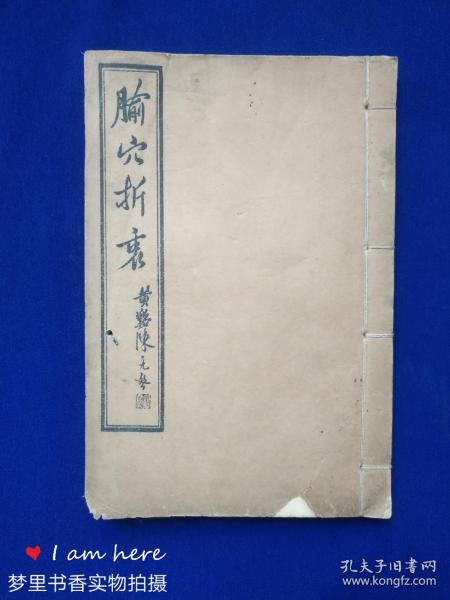 腧穴折衷
黄谿陳无咎
♥ I am here
梦里书香实物拍摄
孔夫子旧书网
www.kongfz.com